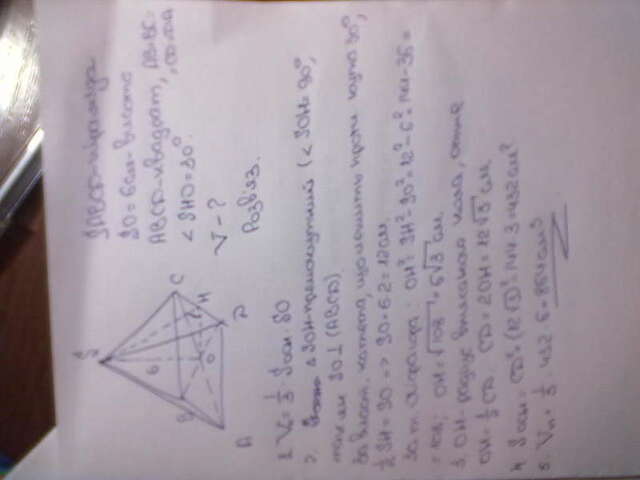 SABCD-піраміда
SO = 6см-висота
ABCD-квадрат, AB=BC=
< SHO = 30°
V - ?
Розв'яз.
S
C
H
D
6
O
B
A
1. V = 1/3 · Sосн · SO
2. Δ SOH-прямокутний (< SOH = 90°,
так як SO ⊥ (ABCD)
За власт. катета, що лежить проти кута 30°,
1/2 SH = SO => SO · 2 = 12 см.
За т. Піфагора: OH² = SH² - SO² = 12² - 6² = 144 - 36 =
= 108; OH = √108 = 6√3 см.
3. OH - радіус вписаного кола, отже
OH = 1/2 CD. CD = 2OH = 12√3 см.
4. Sосн = CD² = (12√3)² = 144 · 3 = 432 см²
5. Vп = 1/3 · 432 · 6 = 864 см³